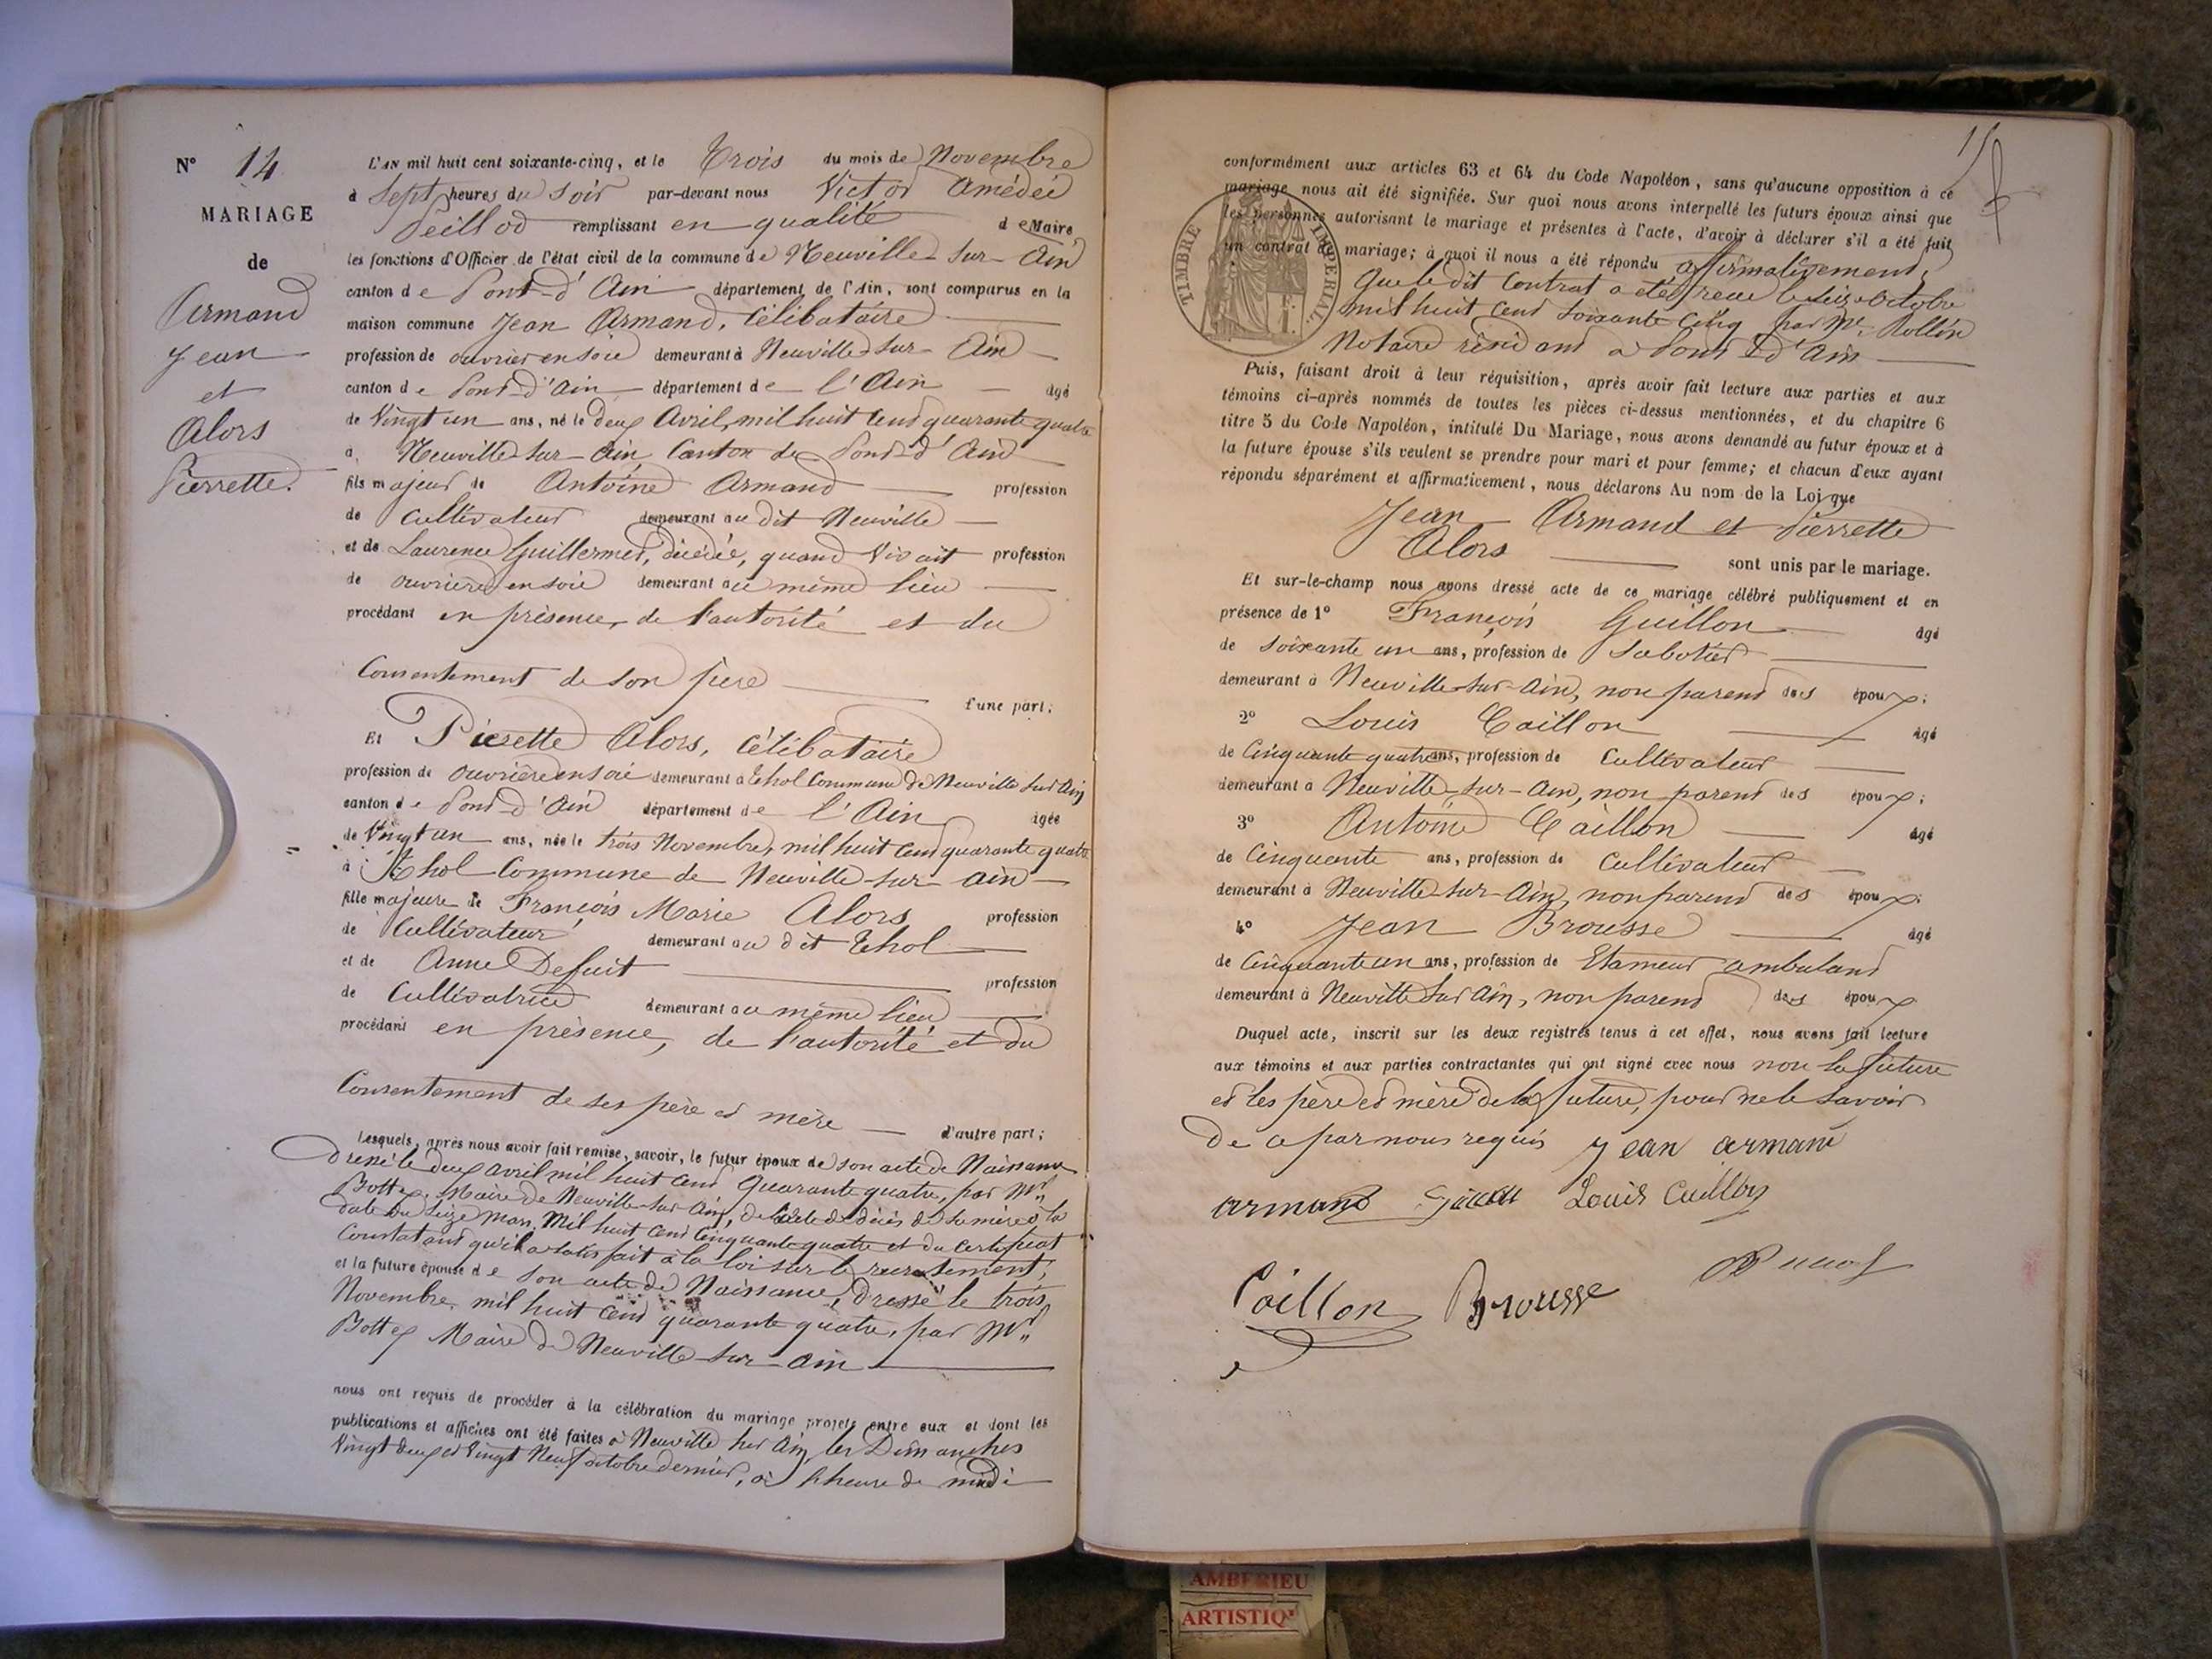 N° 14
MARIAGE
de
Armand
Jean
et
Alors
Pierrette.
L'AN mil huit cent soixante-cinq, et le Trois du mois de Novembre
à Sept heures du Soir par-devant nous Victor Amédée
Peillod remplissant en qualité de Maire
les fonctions d'Officier de l'état civil de la commune de Neuville-sur-Ain
canton de Pont-d'Ain département de l'Ain, sont comparus en la
maison commune Jean Armand, célibataire
profession de ouvrier en soie demeurant à Neuville-sur-Ain
canton de Pont-d'Ain département de l'Ain âgé
de Vingt un ans, né le deux Avril, mil huit cent quarante quatre
à Neuville-sur-Ain Canton de Pont-d'Ain
fils majeur de Antoine Armand profession
de cultivateur demeurant au dit Neuville
et de Laurence Guillermet, décédée, quand vivait profession
de ouvrière en soie demeurant au même lieu
procédant en présence, de l'autorité et du
Consentement de son père
d'une part;
Et Pierrette Alors, célibataire
profession de ouvrière en soie demeurant à Thol Commune de Neuville sur Ain
canton de Pont-d'Ain département de l'Ain âgée
de Vingt un ans, née le trois Novembre, mil huit cent quarante quatre
à Thol Commune de Neuville-sur-Ain
fille majeure de François Marie Alors profession
de Cultivateur demeurant au dit Thol
et de Anne Defuit profession
de Cultivatrice demeurant au même lieu
procédant en présence, de l'autorité et du
Consentement de ses père et mère d'autre part;
Lesquels, après nous avoir fait remise, savoir, le futur époux de son acte de Naissance
dressé le deux avril mil huit cent quarante quatre, par Mr
Bottex Maire de Neuville-sur-Ain, de celle de décès de sa mère à la
date du seize Mars, Mil huit cent cinquante quatre et du certificat
Constatant qu'il a satisfait à la loi sur le recrutement,
et la future épouse de son acte de Naissance, dressé le trois
Novembre mil huit cent quarante quatre, par Mr
Bottex Maire de Neuville-sur-Ain
nous ont requis de procéder à la célébration du mariage projeté entre eux et dont les
publications et affiches ont été faites à Neuville sur Ain, les Dimanches
Vingt deux et Vingt Neuf octobre dernier, à l'heure de midi
15
conformément aux articles 63 et 64 du Code Napoléon, sans qu'aucune opposition à ce
mariage nous ait été signifiée. Sur quoi nous avons interpellé les futurs époux ainsi que
les personnes autorisant le mariage et présentes à l'acte, d'avoir à déclarer s'il a été fait
un contrat de mariage; à quoi il nous a été répondu affirmativement,
TIMBRE IMPERIAL
Que le dit Contrat a été reçu le seize Octobre
mil huit cent soixante cinq par Me Rollin
Notaire résidant à Pont d'Ain
Puis, faisant droit à leur réquisition, après avoir fait lecture aux parties et aux
témoins ci-après nommés de toutes les pièces ci-dessus mentionnées, et du chapitre 6
titre 5 du Code Napoléon, intitulé Du Mariage, nous avons demandé au futur époux et à
la future épouse s'ils veulent se prendre pour mari et pour femme; et chacun d'eux ayant
répondu séparément et affirmativement, nous déclarons Au nom de la Loi que
Jean Armand et Pierrette
Alors sont unis par le mariage.
Et sur-le-champ nous avons dressé acte de ce mariage célébré publiquement et en
présence de 1° François Guillon âgé
de soixante un ans, profession de Sabotier
demeurant à Neuville-sur-Ain, non parent des époux;
2° Louis Caillon âgé
de Cinquante quatre ans, profession de Cultivateur
demeurant à Neuville-sur-Ain, non parent des époux;
3° Antoine Caillon âgé
de Cinquante ans, profession de Cultivateur
demeurant à Neuville-sur-Ain, non parent des époux;
4° Jean Brousse âgé
de Cinquante un ans, profession de Etameur ambulant
demeurant à Neuville sur Ain, non parent des époux
Duquel acte, inscrit sur les deux registres tenus à cet effet, nous avons fait lecture
aux témoins et aux parties contractantes qui ont signé avec nous non la future
et les père et mère de la future, pour ne le savoir
De ce par nous requis Jean armand
armand Louis Caillon
Caillon Brousse
AMBERIEU
ARTISTIQ